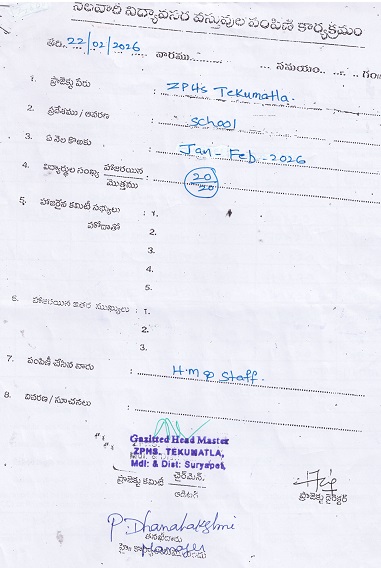 నెలవారి విద్యావసర వస్తువుల పంపిణి కార్యక్రమం
తేది. 22/02/2026 వారము........ సమయం...... గం
1. ప్రాజెక్టు పేరు : ZPHS Tekumatla.
2. ప్రదేశము / ఆవరణ : School
3. ఏ నెల కొఱకు : Jan - Feb - 2026
4. విద్యార్థుల సంఖ్య హాజరయిన / మొత్తము : 20/20
5. హాజరైన కమిటీ సభ్యులు : 1.
హోదాతో 2.
3.
4.
5.
6. హాజరయిన ఇతర ముఖ్యులు : 1.
2.
3.
7. పంపిణీ చేసిన వారు : H.M & Staff.
8. వివరణ / సూచనలు :
Gazitted Head Master
ZPHS. TEKUMATLA,
Mdl: & Dist: Suryapet.
ప్రాజెక్టు కమిటీ చైర్మెన్.
ఆడిటర్
ప్రాజెక్టు డైరెక్టర్
P. Dhanalakshmi
Manager